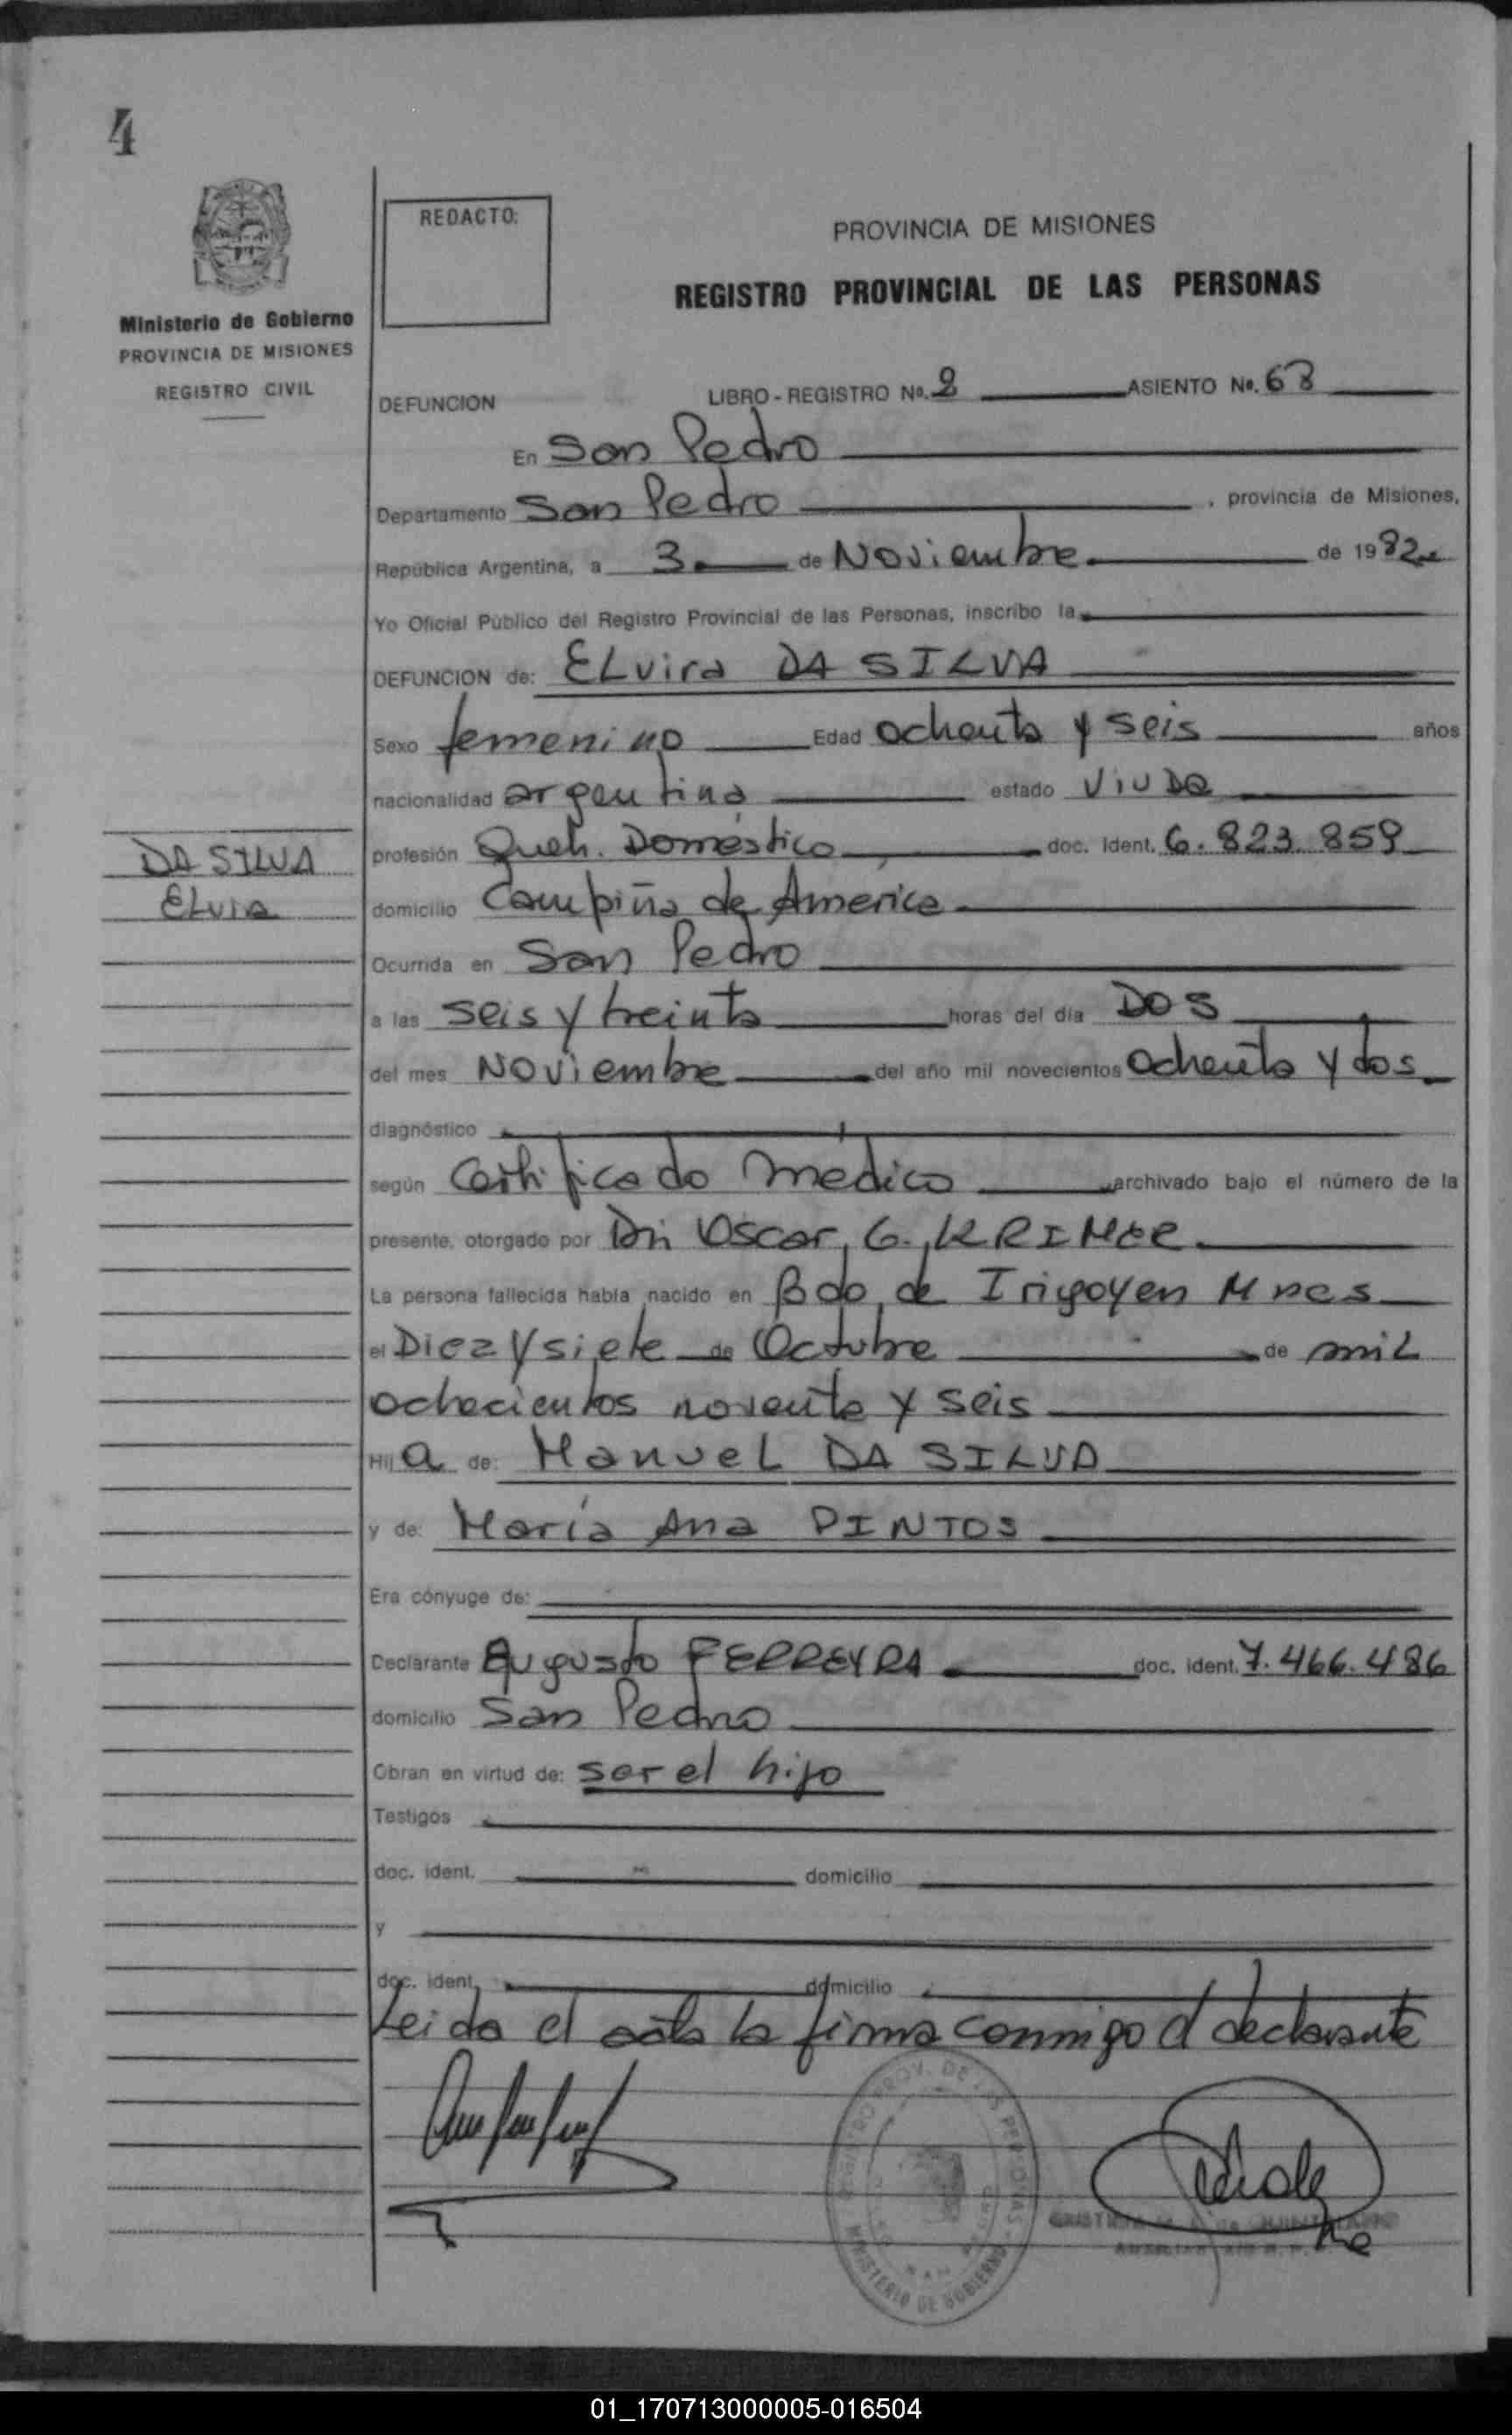 4
REDACTO:
PROVINCIA DE MISIONES
REGISTRO PROVINCIAL DE LAS PERSONAS
Ministerio de Gobierno
PROVINCIA DE MISIONES
REGISTRO CIVIL
DEFUNCION LIBRO - REGISTRO No. 2 ASIENTO No. 63
En San Pedro
Departamento San Pedro , provincia de Misiones,
República Argentina, a 3 de Noviembre de 1982
Yo Oficial Público del Registro Provincial de las Personas, inscribo la
DEFUNCION de: ELvira DA SILVA
Sexo femenino Edad ochenta y seis años
nacionalidad argentina estado Viuda
profesión Queh. Doméstico doc. Ident. 6.823.859
DA SILVA
ELvia
domicilio Campiña de América
Ocurrida en San Pedro
a las seis y treinta horas del día DOS
del mes Noviembre del año mil novecientos ochenta y dos
diagnóstico
según Certificado medico archivado bajo el número de la
presente, otorgado por Dr. Oscar G. KRIMER
La persona fallecida había nacido en Bdo. de Irigoyen Mnes
el Diez y siete de Octubre de mil
ochecientos noventa y seis
Hij a de: Manuel DA SILVA
y de: María Ana PINTOS
Era cónyuge de:
Declarante Augusto FERREYRA doc. ident. 7.466.486
domicilio San Pedro
Obran en virtud de: ser el hijo
Testigos
doc. ident. domicilio
y
doc. ident. domicilio
Leida el acta la firma conmigo el declarante
REGISTRO PROV. DE LAS PERSONAS
MINISTERIO DE GOBIERNO
01_170713000005-016504